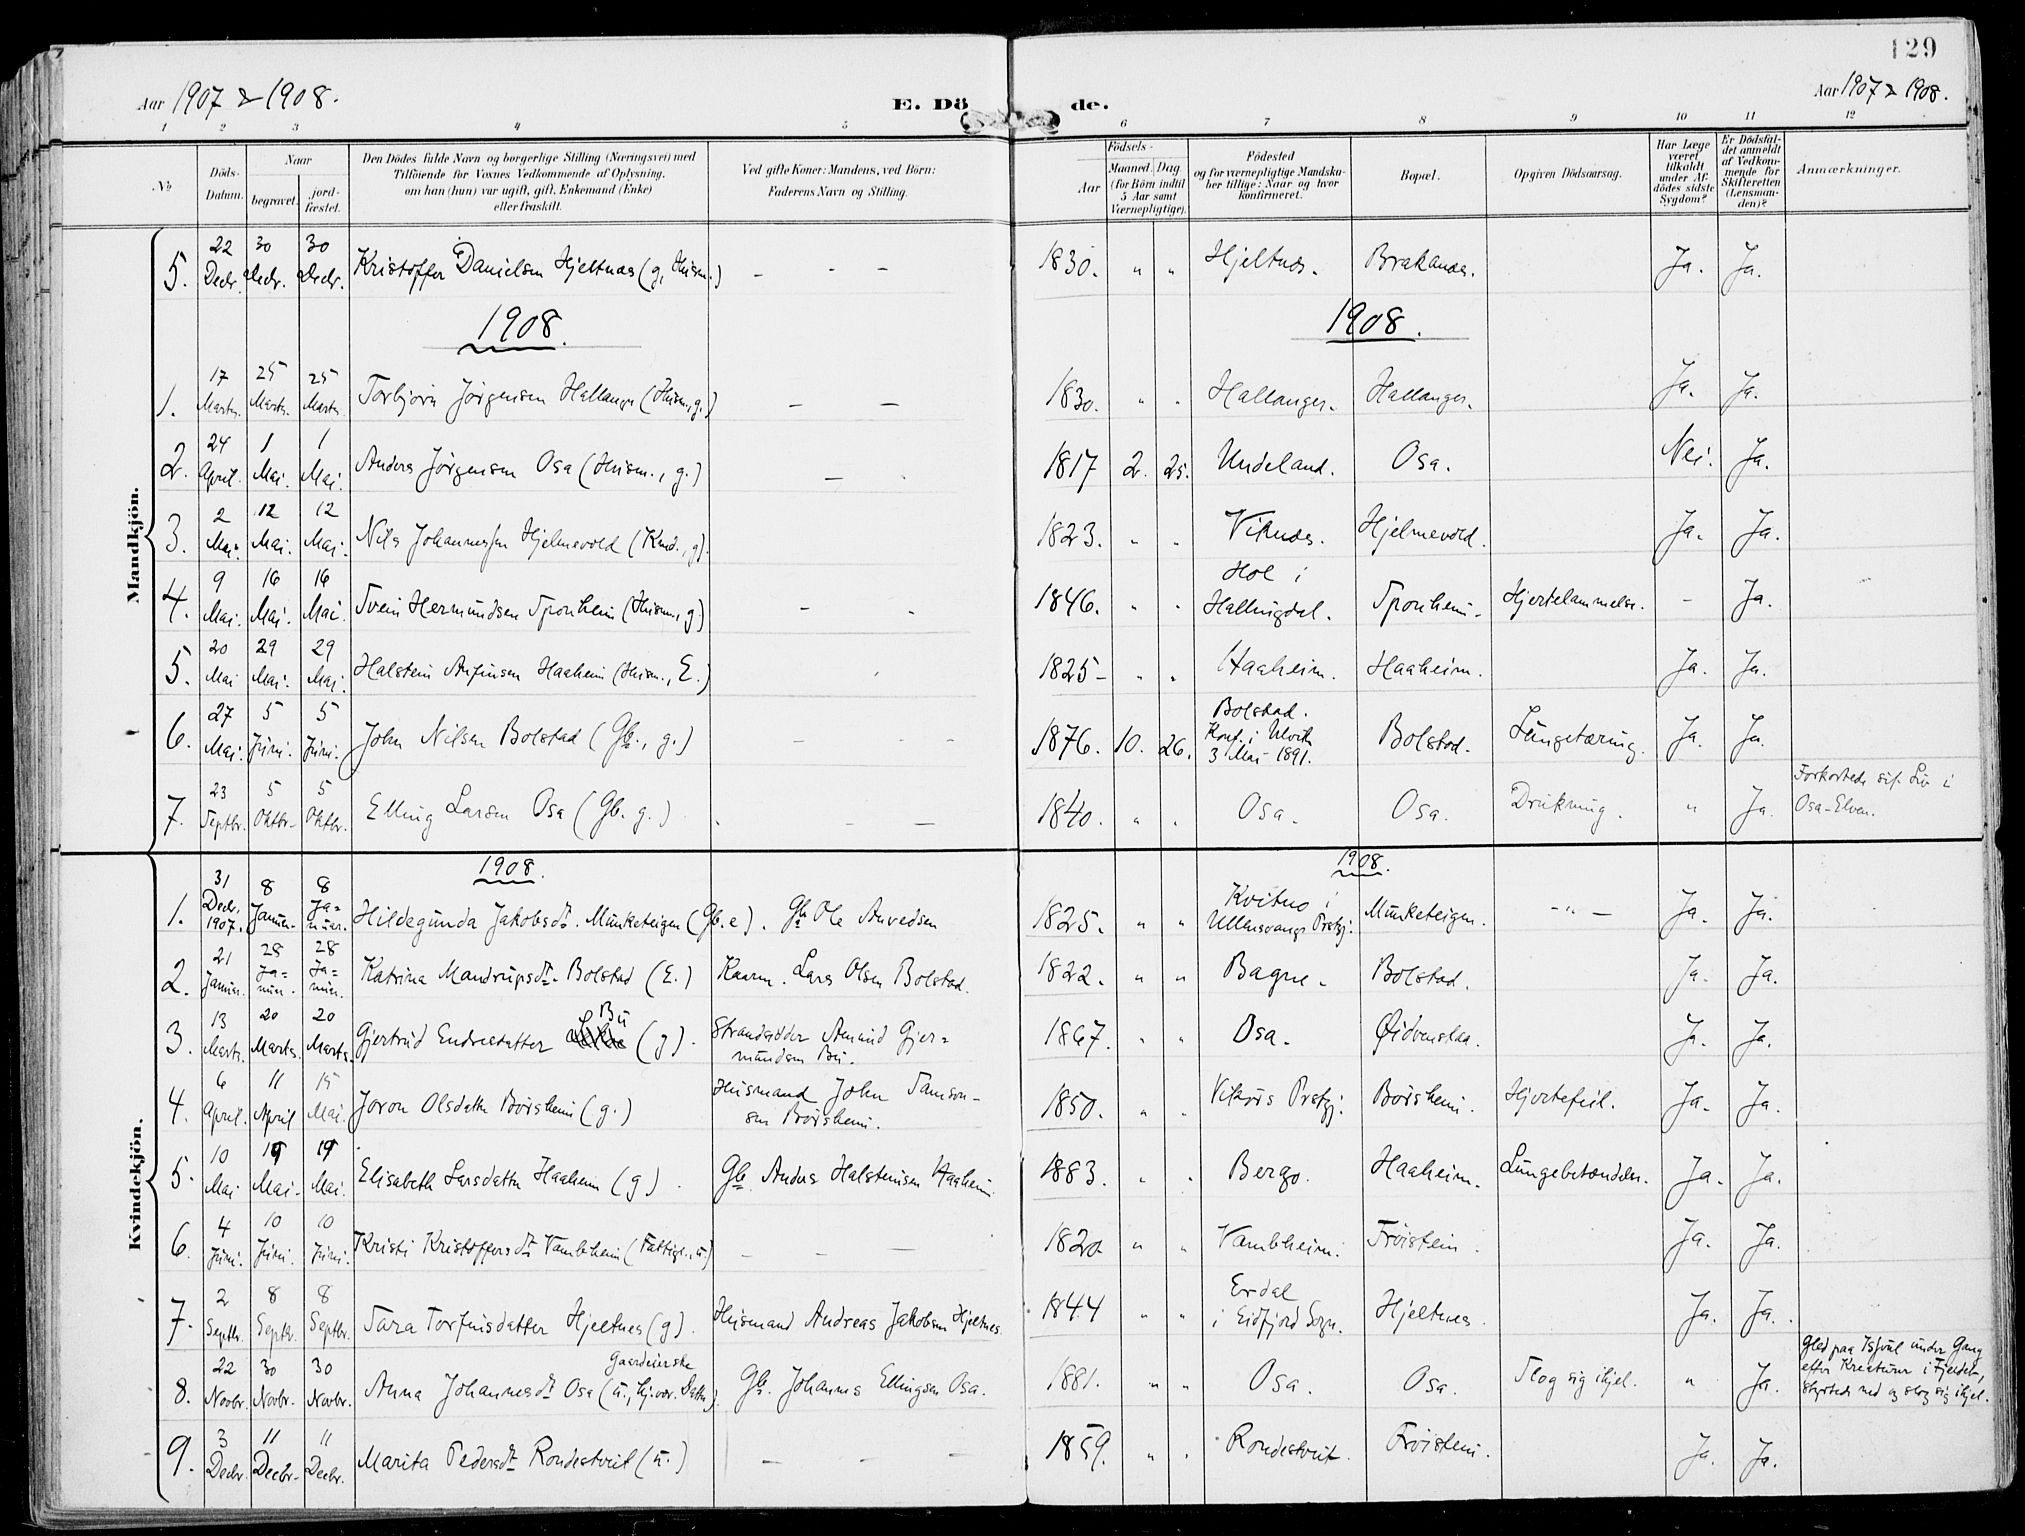 129
Aar 1907 & 1908.
E. Dö
de.
Aar 1907 & 1908.
1 2 3 4 5 6 7 8 9 10 11 12
No
Döds-Datum.
Naar
begravet.
jord-fæstet.
Den Dödes fulde Navn og borgerlige Stilling (Næringsvei) med
Tilföiende for Voxnes Vedkommende af Oplysning,
om han (hun) var ugift, gift, Enkemand (Enke)
eller fraskilt.
Ved gifte Koner: Mandens, ved Börn:
Faderens Navn og Stilling.
Födsels-
Aar
Maaned. Dag
(for Börn indtil
5 Aar samt
Værnepligtige).
Födested
og for værnepligtige Mandska-
ber tillige: Naar og hvor
konfirmeret.
Bopæl.
Opgiven Dödsaarsag.
Har Læge
været
tilkaldt
under Af-
dödes sidste
Sygdom?
Er Dödsfal-
det anmeldt
af Vedkom-
mende for
Skifteretten
(Lensman-
den)?
Anmærkninger.
Mandkjön.
5. 22 Decbr. 30 Decbr. 30 Decbr. Kristoffer Danielsen Hjeltnes (g, Husm.) – – – 1830. " " Hjeltnes. Brakanes. Ja. Ja.
1908. 1908.
1. 17 Marts. 25 Marts. 25 Marts. Torbjørn Jørgensen Hallanger (Husm., g.) – – 1830. " " Hallanger. Hallanger. Ja. Ja.
2. 24 April. 1 Mai. 1 Mai. Anders Jørgensen Osa (Husm., g.) – 1817 2. 25. Undeland. Osa. Nei. Ja.
3. 2 Mai. 12 Mai. 12 Mai. Nils Johannessen Hjelmevold (Kmd., g). 1823. " " Viknes. Hjelmevold. Ja. Ja.
4. 9 Mai. 16 Mai. 16 Mai. Svein Hermundsen Sponheim (Husm., g) – 1846. " " Hol i Hallingdal. Sponheim. Hjertelammelse. – Ja.
5. 20 Mai 29 Mai. 29 Mai. Halstein Anfinsen Haaheim (Husm., E.) 1825 – " " Haaheim. Haaheim. Ja. Ja.
6. 27 Mai. 5 Juni. 5 Juni. John Nilsen Bolstad (Gb., g.) – – – 1876. 10. 26. Bolstad. Konf. i Ulvik 3 Mai 1891. Bolstad. Lungetæring. Ja. Ja.
7. 23 Septbr. 5 Oktbr. 5 Oktbr. Elling Larsen Osa (Gb. g.) – – 1840. " " Osa. Osa. Drukning. " Ja. Forkortede sit Liv i Osa-Elven.
Kvindekjön.
1908. 1908.
1. 31 Decbr. 1907. 8 Januar. 8 Ja=nuar. Hildegunda Jakobsdt. Munketeigen (Gb. e). Gb Ole Anvedsen 1825. " " Kvitno i Ullensvangs Prstgj. Munketeigen. –"– Ja. Ja.
2. 21 Januar. 28 Ja=nuar. 28 Ja=nuar. Katrina Mandrupsdt. Bolstad (E.) Kaarm. Lars Olsen Bolstad. 1822. " " Bagne. Bolstad. Ja. Ja.
3. 13 Marts. 20 Marts. 20 Marts. Gjertrud Endresdatter Bu (g). Strandsidder Amund Gjer=mundsen Bu. 1867. " " Osa. Øidvenstaa. Ja. Ja.
4. 6 April. 11 April 15 Mai. Joron Olsdatter Børsheim (g.) Husmand John Samson-sen Børsheim. 1850. " " Vikørs Prstgj. Børsheim. Hjertefeil. Ja. Ja.
5. 10 Mai 19 Mai. 19 Mai. Elisabeth Larsdatter Haaheim (g). Gb. Anders Halsteinsen Haaheim. 1883. " " Bergo. Haaheim. Lungebetændelse. Ja. Ja.
6. 4 Juni. 10 Juni. 10 Juni. Kristi Kristoffersdt. Vambheim (Fattigl., u) – – – 1820 " " Vambheim. Frøistein. Ja. Ja.
7. 2 Septbr. 8 Septbr. 8 Septbr. Sara Torfinsdatter Hjeltnes (g). Husmand Andreas Jakobsen Hjeltnes. 1844 " " Erdal i Eidfjord Sogn. Hjeltnes. Ja. Ja.
8. 22 Novbr. 30 Novbr. 30 Novbr. Anna Johannesdt Osa (u., hj.vær. Datter). Gaardeierske Gb. Johannes Ellingsen Osa. 1881. " " Osa. Osa. Slog sig ihjel. " Ja. Gled paa Isfjeld under Gang efter Kreaturer i Fjeldet, styrtede ned og slog sig ihjel.
9. 3 Decbr. 11 Decbr. 11 Decbr. Marita Pedersdt Rondestveit (u.) – – – 1859. " " Rondestveit. Frøistein. Ja. Ja.